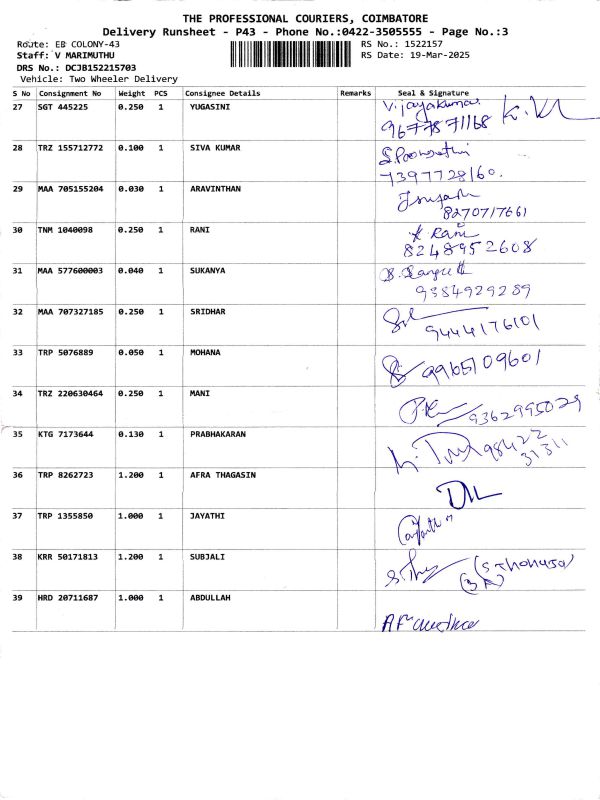 THE PROFESSIONAL COURIERS, COIMBATORE
Delivery Runsheet - P43 - Phone No.:0422-3505555 - Page No.:3
Route: EB COLONY-43 RS No.: 1522157
Staff: V MARIMUTHU RS Date: 19-Mar-2025
DRS No.: DCJB152215703
Vehicle: Two Wheeler Delivery
S No Consignment No Weight PCS Consignee Details Remarks Seal & Signature
27 SGT 445225 0.250 1 YUGASINI Vijayakumar
9677871168 K.
28 TRZ 155712772 0.100 1 SIVA KUMAR
7397728160.
29 MAA 705155204 0.030 1 ARAVINTHAN
8270717661
30 TNM 1040098 0.250 1 RANI Rani
8248952608
31 MAA 577600003 0.040 1 SUKANYA
9384929289
32 MAA 707327185 0.250 1 SRIDHAR
9444176101
33 TRP 5076889 0.050 1 MOHANA 9965109601
34 TRZ 220630464 0.250 1 MANI 9362995029
35 KTG 7173644 0.130 1 PRABHAKARAN 98422
31311
36 TRP 8262723 1.200 1 AFRA THAGASIN
37 TRP 1355850 1.000 1 JAYATHI
38 KRR 50171813 1.200 1 SUBJALI
39 HRD 20711687 1.000 1 ABDULLAH